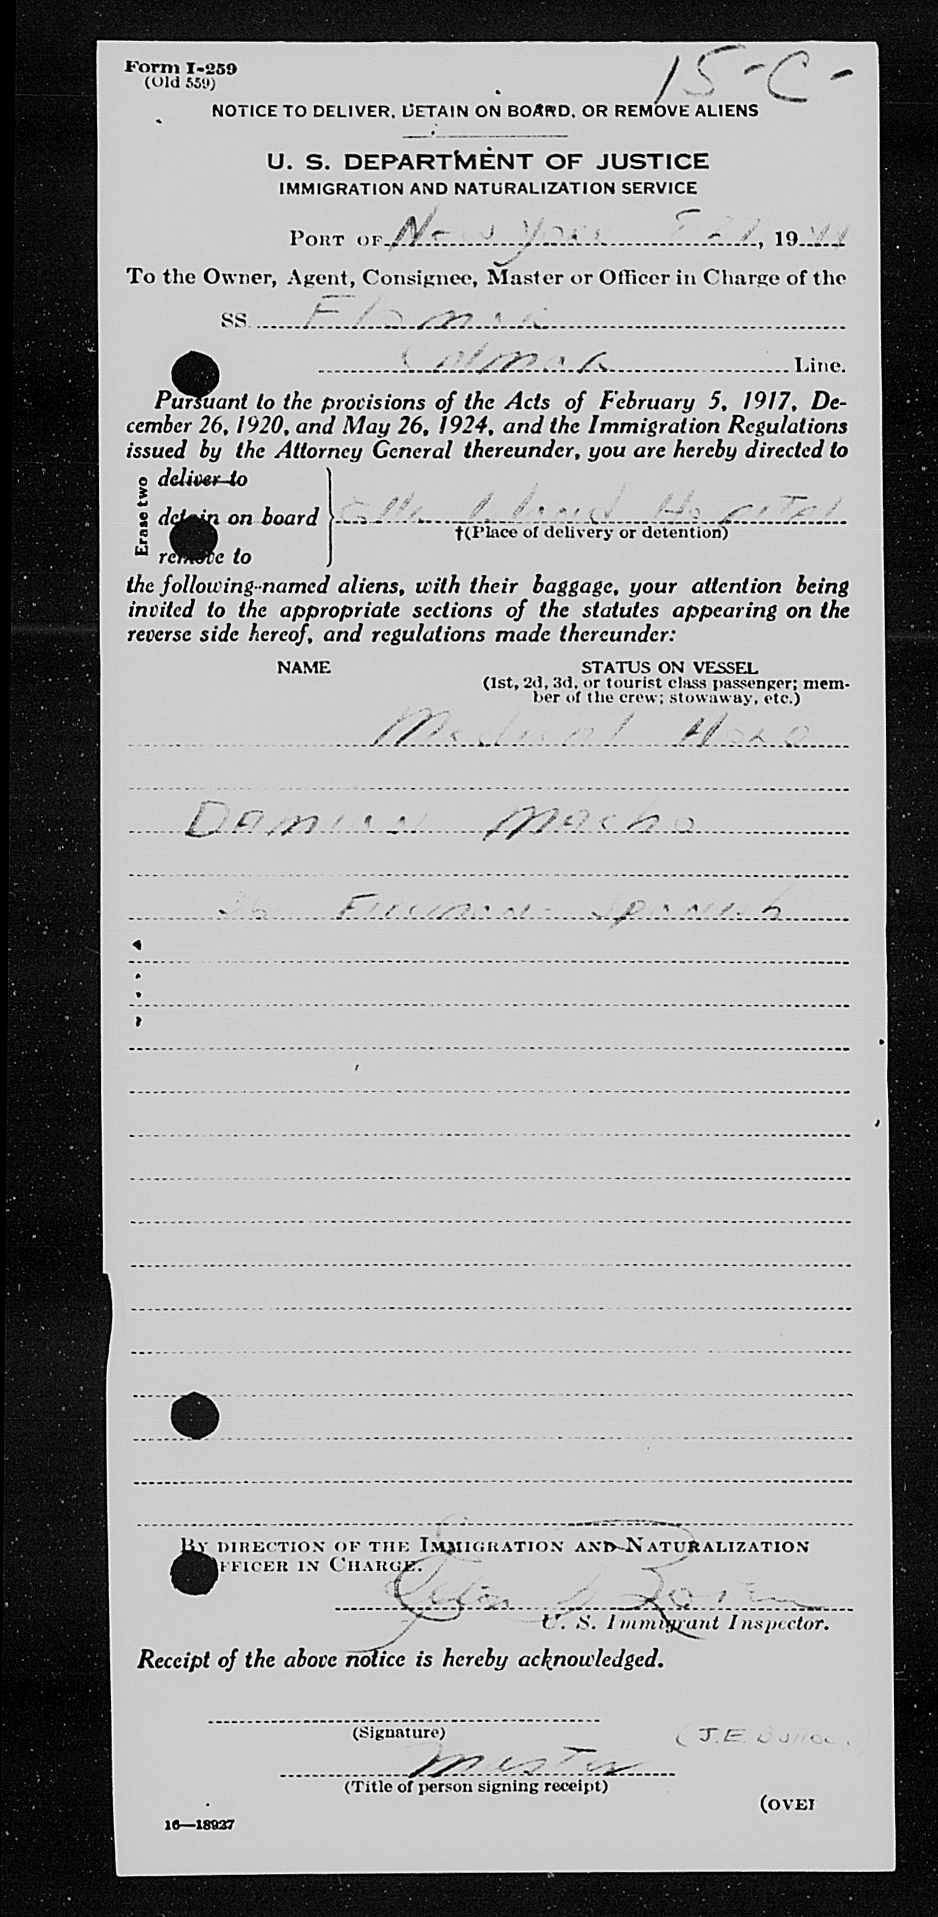 Form I-259
(Old 559)
15-C-
NOTICE TO DELIVER, DETAIN ON BOARD, OR REMOVE ALIENS
U. S. DEPARTMENT OF JUSTICE
IMMIGRATION AND NATURALIZATION SERVICE
PORT OF New York, 1944
To the Owner, Agent, Consignee, Master or Officer in Charge of the
SS.
Line.
Pursuant to the provisions of the Acts of February 5, 1917, De-
cember 26, 1920, and May 26, 1924, and the Immigration Regulations
issued by the Attorney General thereunder, you are hereby directed to
Erase two
deliver to
detain on board
remove to
Ellis Island Hospital
†(Place of delivery or detention)
the following-named aliens, with their baggage, your attention being
invited to the appropriate sections of the statutes appearing on the
reverse side hereof, and regulations made thereunder:
NAME STATUS ON VESSEL
(1st, 2d, 3d, or tourist class passenger; mem-
ber of the crew; stowaway, etc.)
Medical Hold
Damian Macho
36 Fireman - Spanish
BY DIRECTION OF THE IMMIGRATION AND NATURALIZATION
OFFICER IN CHARGE.
U. S. Immigrant Inspector.
Receipt of the above notice is hereby acknowledged.
(Signature)
(J.E.
Master
(Title of person signing receipt)
(OVER
16—18927